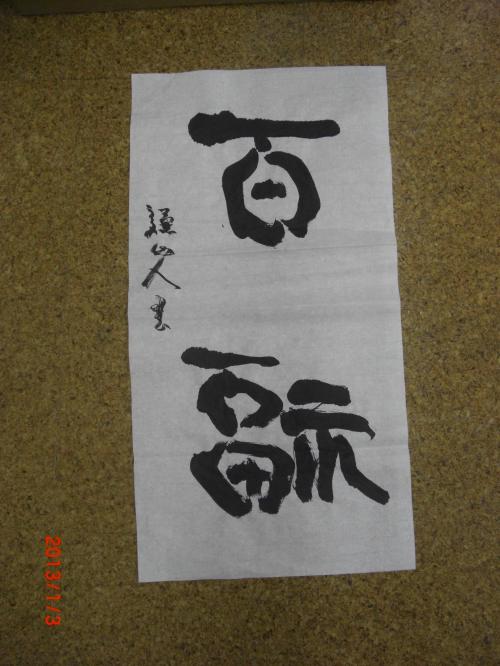 百福
山人書
2013/1/3